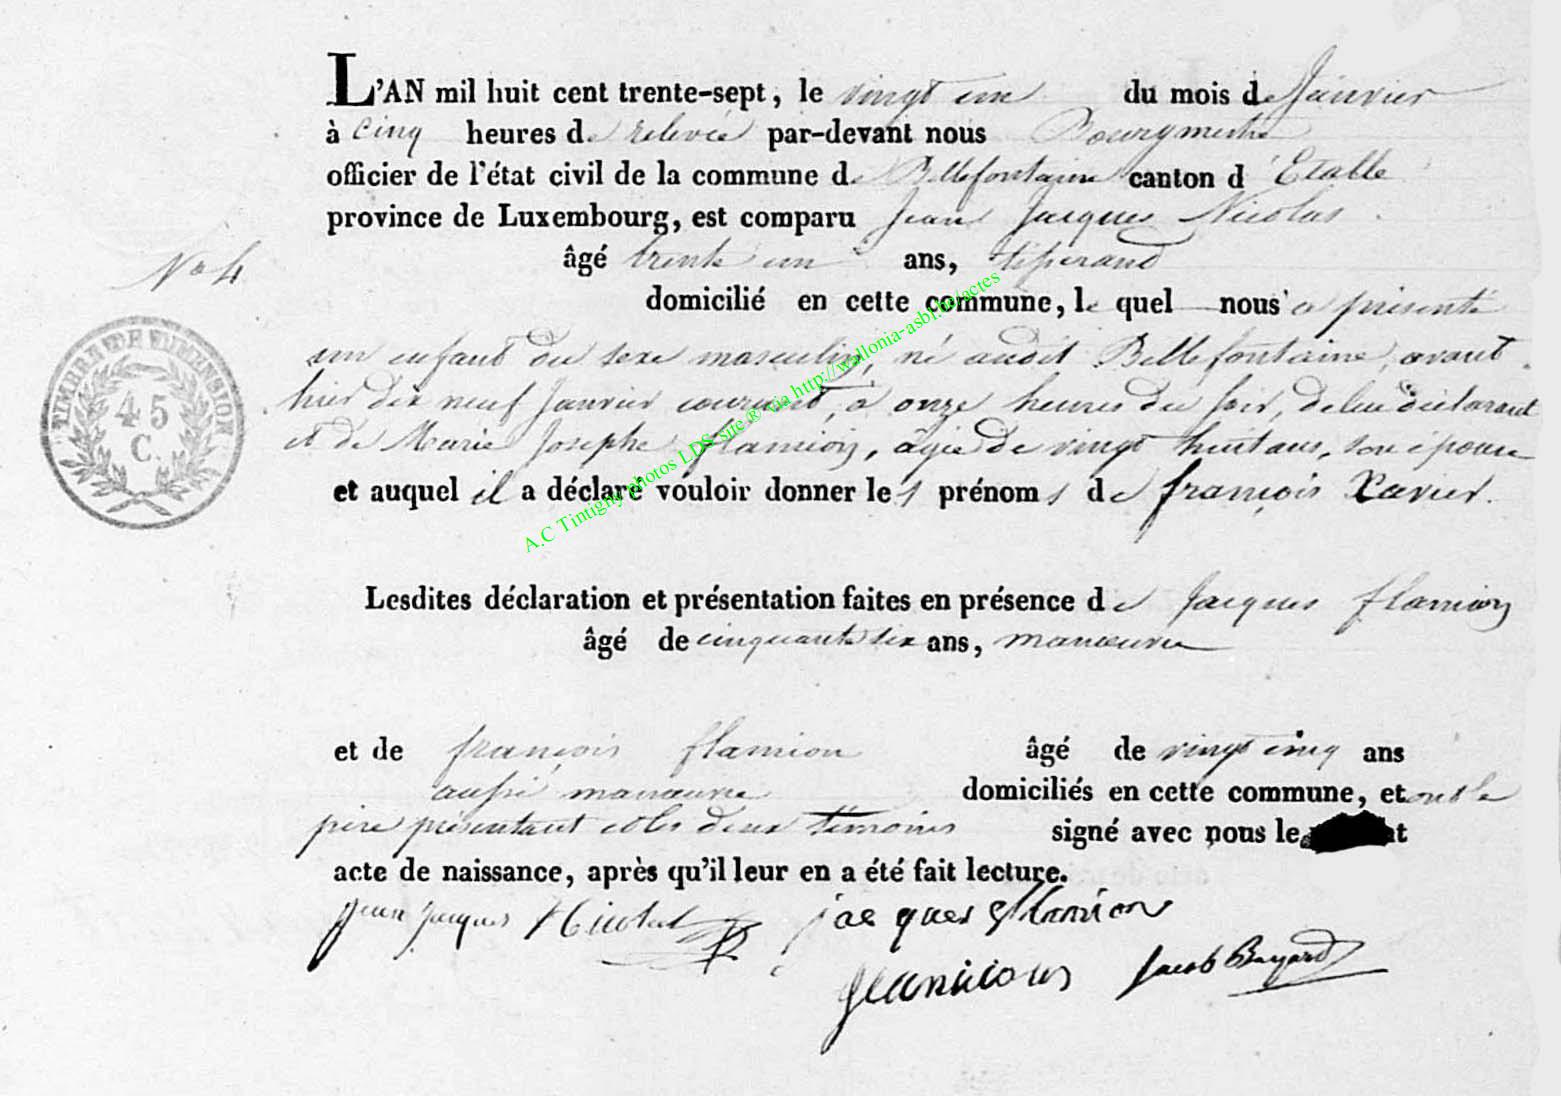 L'AN mil huit cent trente-sept, le vingt un du mois de Janvier
à cinq heures de relevée par-devant nous Bourgmestre
officier de l'état civil de la commune de Bellefontaine canton d'Etalle
province de Luxembourg, est comparu Jean Jacques Nicolas
No 4
âgé trente un ans, tisserand
domicilié en cette commune, le quel nous a présenté
un enfant du sexe masculin, né audit Bellefontaine, avant
hier dix neuf Janvier courant, à onze heures du soir, de lui déclarant
et de Marie Josephe flamion, âgée de vingt huit ans, son epouse
et auquel il a déclaré vouloir donner les prénoms de françois Xavier.
TIMBRE DE DIMENSION
45
C.
A.C Tintigny photos LDS site ® via http://wallonia-asbl.be/actes
Lesdites déclaration et présentation faites en présence de Jacques flamion
âgé de cinquante six ans, manœuvre
et de françois flamion âgé de vingt cinq ans
aussi manœuvre domiciliés en cette commune, et ont le
père présentant et les deux témoins signé avec nous le
acte de naissance, après qu'il leur en a été fait lecture.
Jean Jacques Nicolas jacques flamion
flamion Jacob Bayard